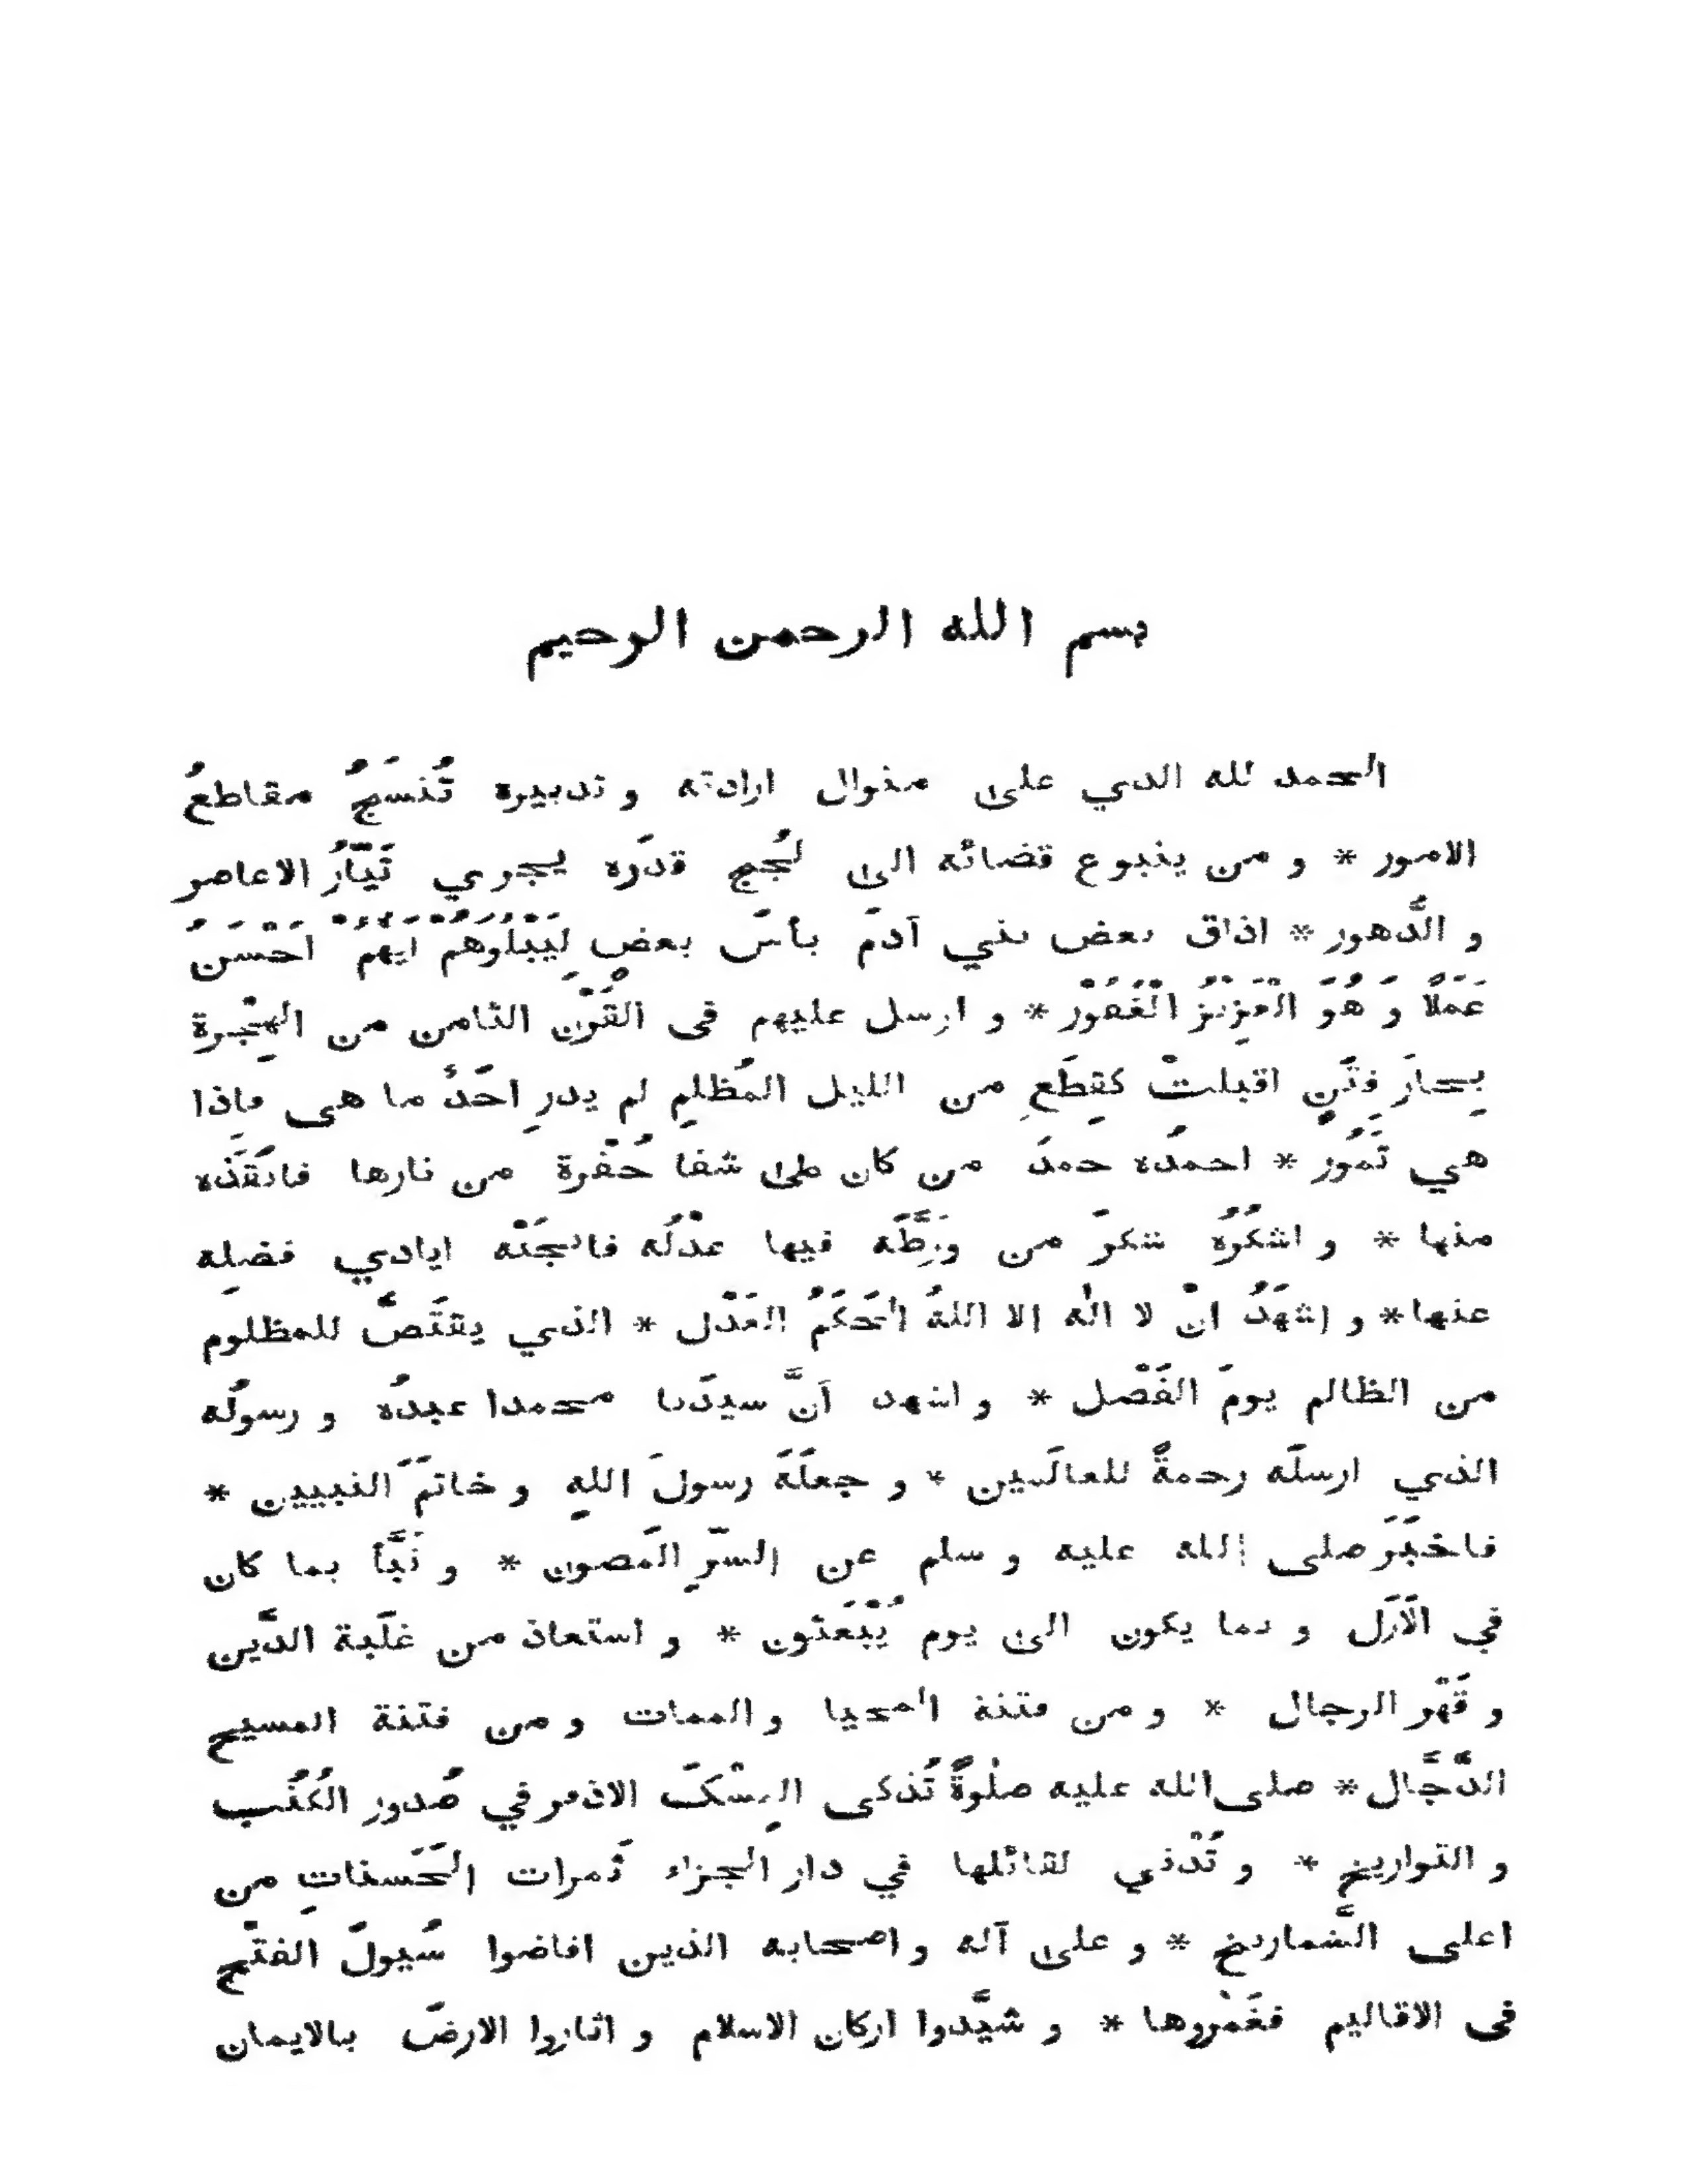 بسم الله الرحمن الرحيم
الحمد لله الذي على منوال ارادته و تدبيره تُنسَجُ مقاطعُ
الامور * و من ينبوع قضائه الى لُججِ قدَره يجري تَيّارُ الاعاصر
و الدَّهور * اذاق بعض بني آدمَ بأسَ بعض لِيَبْلُوَهُمْ اَيُّهُمْ اَحْسَنُ
عَمَلًا وَ هُوَ الْعَزِيْزُ الْغَفُوْر * و ارسل عليهم فى القَرْنِ الثامن من الهِجْرة
بِحارَ فِتَنٍ اقبلتْ كقِطَعِ من الليل المُظلمِ لم يدرِ احَدٌ ما هى فاذا
هي تَمُور * احمدُه حمدَ من كان على شفا حُفْرة من نارها فانقَذَه
منها * و اشكُرُه شكرَ من وَرَّطَه فيها عدْلُه فانْجَتْه ايادي فضلِه
عنها * و اشهَدُ انْ لا اله الا اللهُ الحَكَمُ العَدْل * الذي يقتَصُّ للمظلوم
من الظالم يومَ الفَصْل * و اشهد اَنَّ سيدَنا محمدا عبدُه و رسولُه
الذي ارسلَه رحمةً للعالَمين * و جعلَهَ رسولَ اللهِ و خاتَمَ النبيين *
فاخبَرَ صلى الله عليه و سلم عن السرِّ المَصون * و نَبَّأ بما كان
في الاَزَل و بما يكون الى يوم يُبْعَثون * و استعاذ من غلَبة الدَّين
و قَهْر الرجال * و من فتنة المحيا و الممات و من فتنة المسيح
الدَّجَّال * صلى الله عليه صلٰوةً تُذكى المِسْكَ الاذفر في صُدور الكُتُب
و التواريخ * و تَدْني لقائلها في دار الجزاء ثَمرات الحَسَناتِ من
اعلى الشَّماريخ * و على آله و اصحابه الذين افاضوا سُيولَ الفتْح
فى الاقاليم فغَمَروها * و شيَّدوا اركان الاسلام و اثاروا الارضَ بالايمان